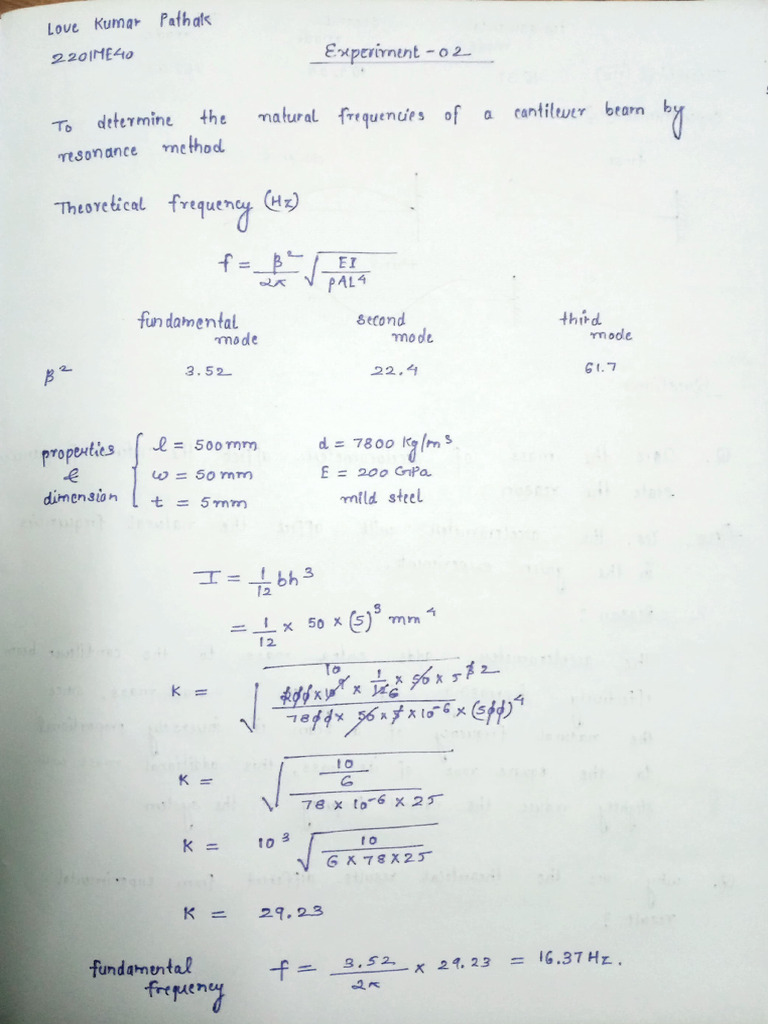 Love Kumar Pathak
2201ME40
Experiment - 02
To determine the natural frequencies of a cantilever beam by
resonance method
Theoretical frequency (Hz)
f = β²/2π √(EI/ρAL⁴)
fundamental mode second mode third mode
β² 3.52 22.4 61.7
properties & dimension
l = 500mm d = 7800 Kg/m³
w = 50 mm E = 200 GPa
t = 5mm mild steel
I = 1/12 bh³
= 1/12 × 50 × (5)³ mm⁴
K = √
K = √((10/6)/(78 × 10⁻⁶ × 25))
K = 10³ √(10/(6 × 78 × 25))
K = 29.23
fundamental frequency f = 3.52/2π × 29.23 = 16.37 Hz.